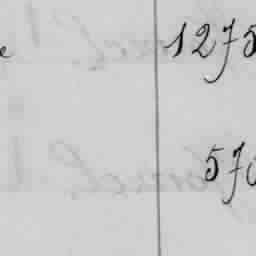 e 1275
570